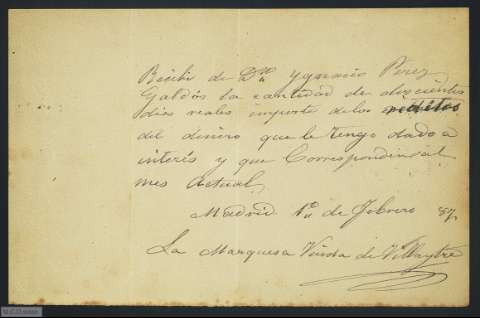 Recibi de Dn Ygnacio Perez
Galdós la cantidad de doscientos
dies reales importe de los réditos
del dinero que le tengo dado a
interés y que Correspondin al
mes Actual
Madrid 1º de Febrero 87,
La Marquesa Viuda de